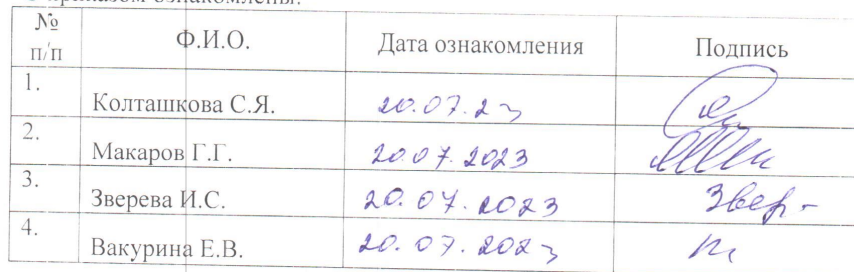 приказом ознакомлены:
№ п/п Ф.И.О. Дата ознакомления Подпись
1. Колташкова С.Я. 20.07.23
2. Макаров Г.Г. 20.07.2023
3. Зверева И.С. 20.07.2023 Звер-
4. Вакурина Е.В. 20.07.2023